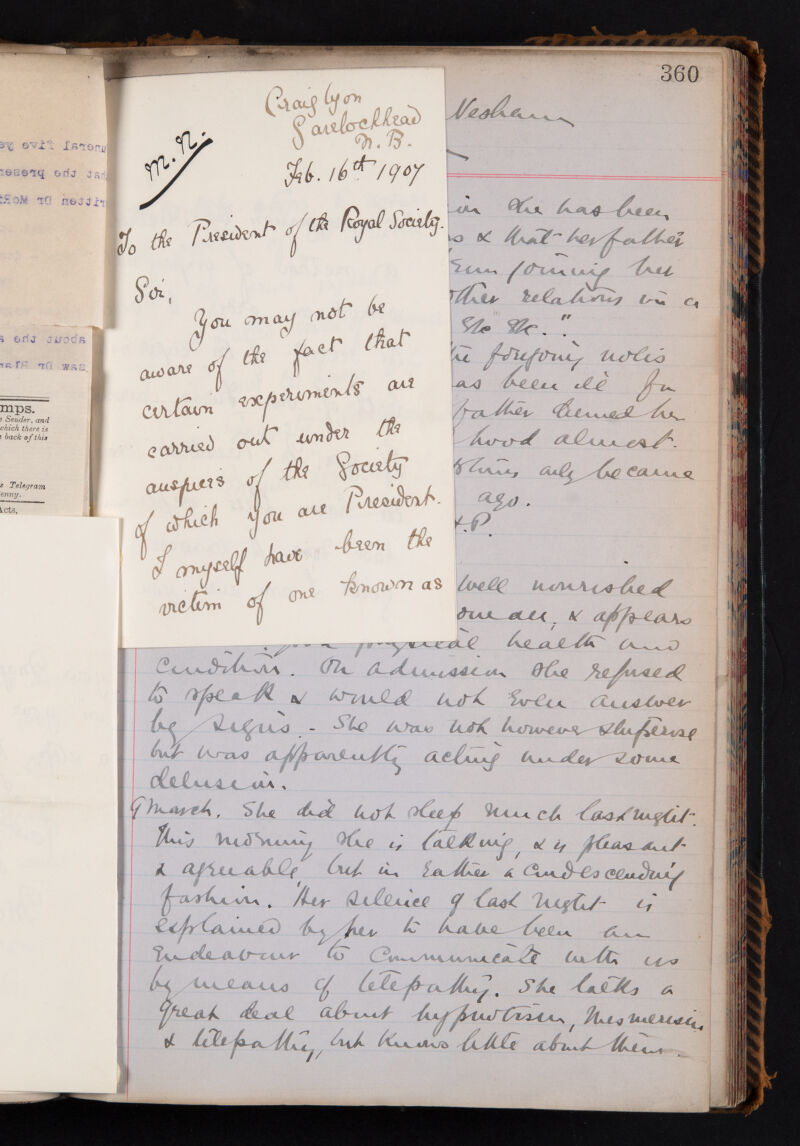 360
Craig Lyon
Garelochhead
N. B.
M.N.
Feb. 16th 1907
To the President of the Royal Society.
Sir,
You may not be
aware of the fact that
certain experiments are
carried out under the
auspices of the Society
of which you are President.
I myself have been the
victim of one known as
she has been
& that her father
joining her
other relations in a
Etc Etc."
the foregoing notes
as been ill for
father deemed her
hood almost.
only became
ago.
well nourished
& appears
physical health and
condition. On admission she refused
to speak & would not even answer
by signs. - She was not however stuporose
but was apparently acting under some
delusion.
9 March. She did not sleep much last night.
This morning she is talking, & is pleasant
& agreeable, but in rather a condescending
fashion. Her silence of last night is
explained by her to have been an
endeavour to communicate with us
by means of telepathy. She talks a
great deal about hypnotism, mesmerism
& telepathy, but knows little about them.
mps.
Sender, and
which there is
back of this
Telegram
enny.
Acts,